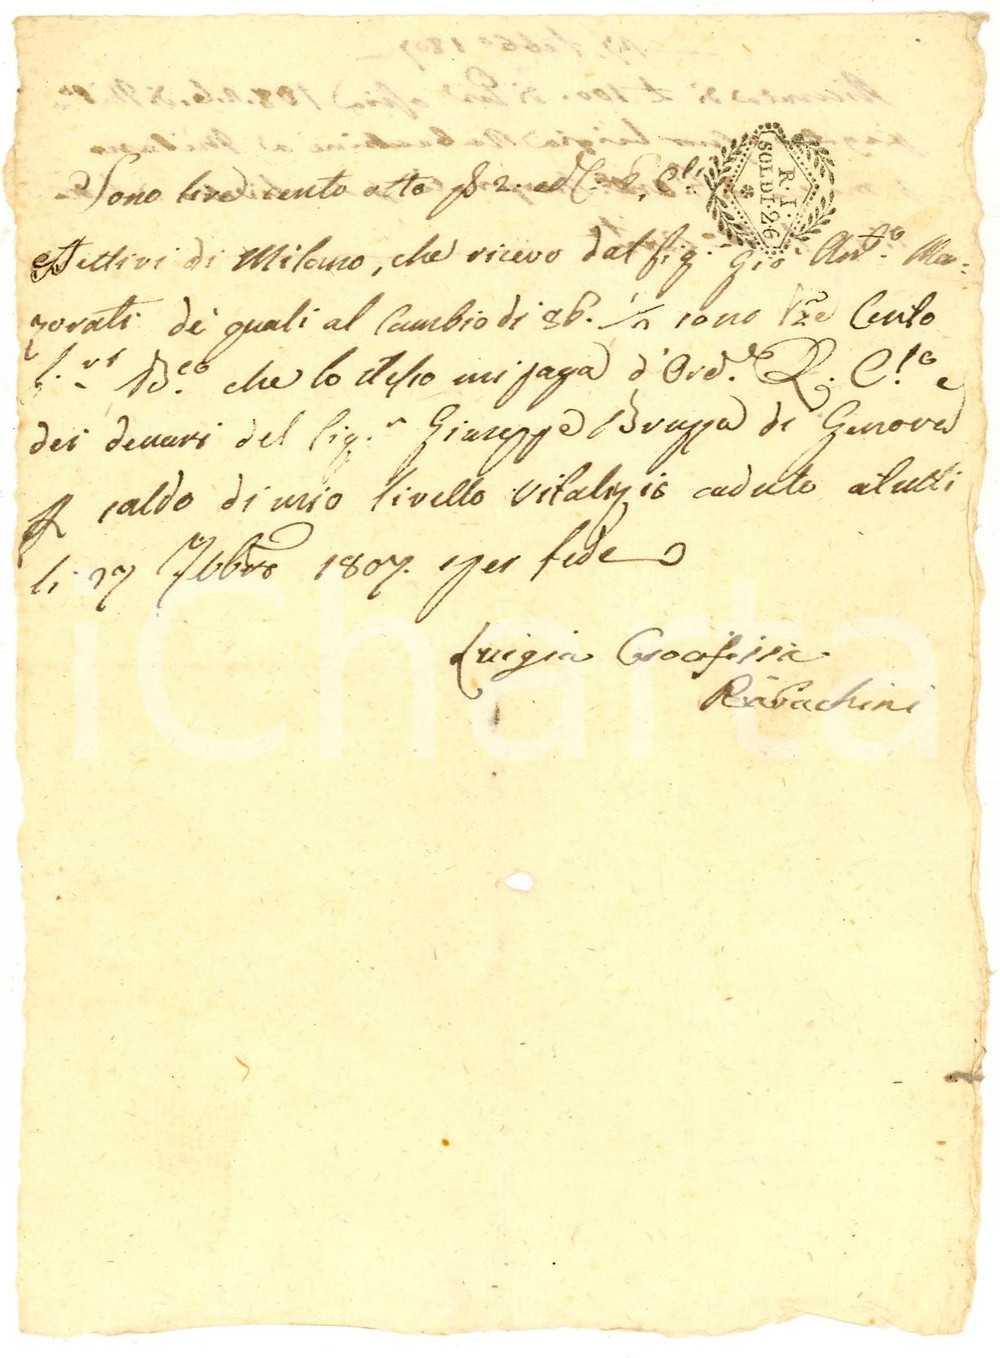 R. I.
SOLDI. 26
Sono lire cento otto
effettivi di Milano, che ricevo dal sig.r Gio Ant.o Ma=
zorati de quali al Cambio di 86. 1/2 sono Cento
che lo stesso mi paga d'Ord.e e C.to e
dei denari del Sig.r Giuseppe Bruppa di Genova
saldo di mio livello vitalizio caduto a tutti
li 27 7bbre 1807. e per fede
Luigia Crocifissa
Rabachini
iCharta